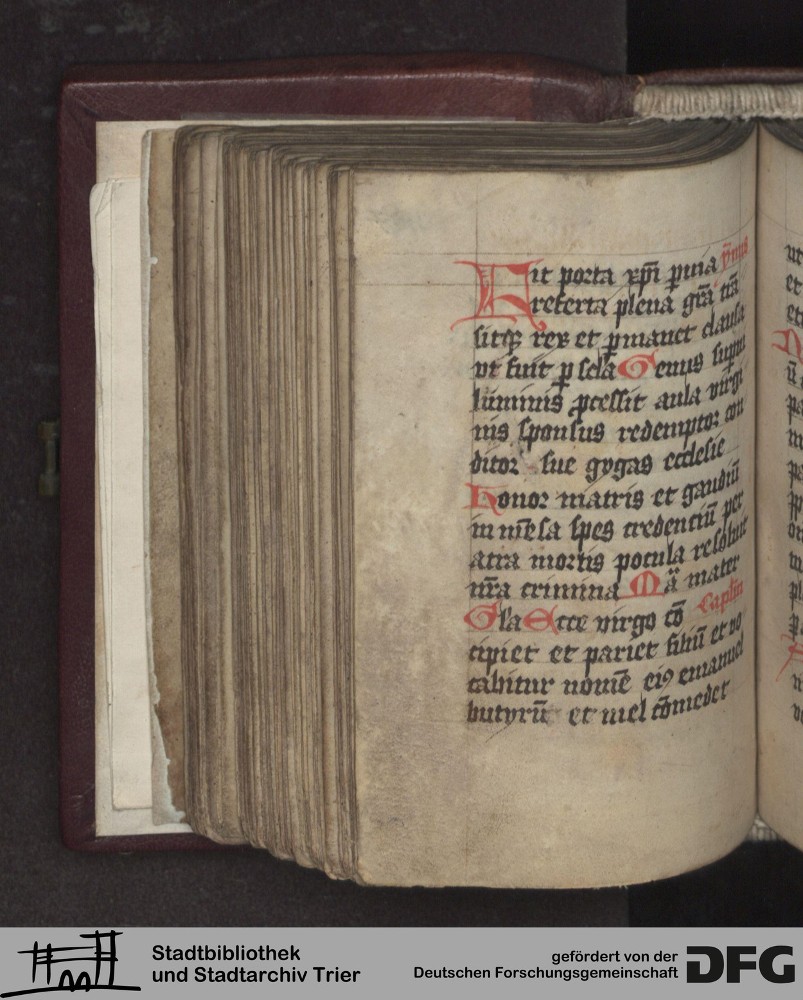 Fit porta xp̄i puia ym̄nus
referta plena grā trā
sitqꝫ rex et ꝑmanet clausa
vt fuit ꝑ scl̄a Genus sup̄ni
luminis ꝓcessit aula virgi
nis sponsus redemptor con
ditor sue gygas ecclesie
Honor matris et gaudiū
in mēsa spes credenciū per
atra mortis pocula resoluit
nr̄a crimina Mā mater
Gl̄a Ecce virgo cō Capl̄m
cipiet et pariet filiū et vo
cabitur nomē eiꝰ emanuel
butyrū et mel cōmedet
ut
et
Stadtbibliothek
und Stadtarchiv Trier
gefördert von der
Deutschen Forschungsgemeinschaft
DFG